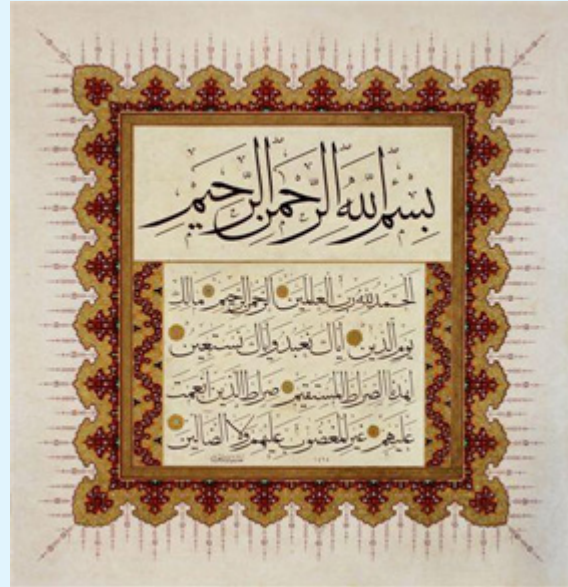 بِسْمِ اللهِ الرَّحْمٰنِ الرَّحِيْمِ
الحمد لله رب العالمين الرحمن الرحيم مالك
يوم الدين اياك نعبد واياك نستعين
اهدنا الصراط المستقيم صراط الذين انعمت
عليهم غير المغضوب عليهم ولا الضالين